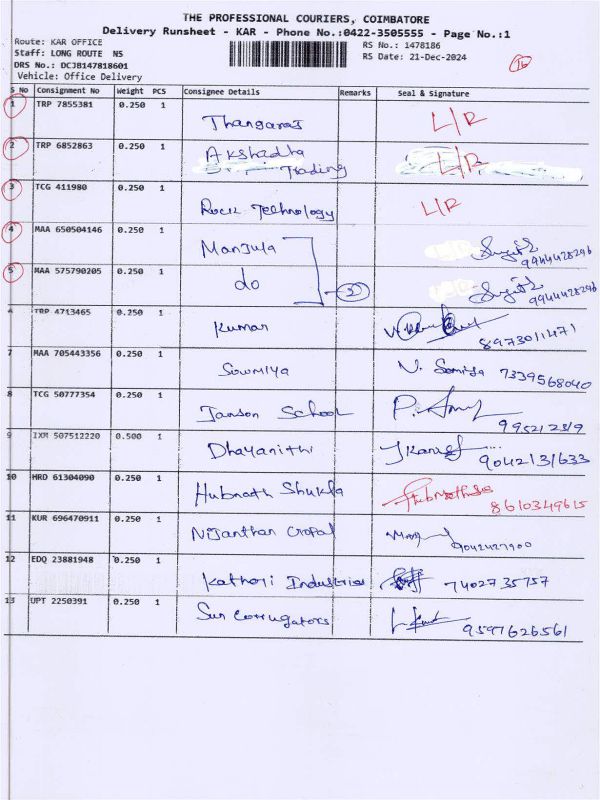 THE PROFESSIONAL COURIERS, COIMBATORE
Delivery Runsheet - KAR - Phone No.:0422-3505555 - Page No.:1
Route: KAR OFFICE
RS No.: 1478186
Staff: LONG ROUTE NS
RS Date: 21-Dec-2024
DRS No.: DCJB147818601
Vehicle: Office Delivery
S No Consignment No Weight PCS Consignee Details Remarks Seal & Signature
1 TRP 7855381 0.250 1 Thangaraj L/R
2 TRP 6852863 0.250 1 Akshidha L/R
Trading
3 TCG 411980 0.250 1 Rock Technology L/R
4 MAA 650504146 0.250 1 Manjula
9944428296
5 MAA 575790205 0.250 1 do 2
9944428296
TRP 4713465 0.250 1 Kumar
8973011471
7 MAA 705443356 0.250 1 Sowmiya V. 7339568040
8 TCG 50777354 0.250 1 Janson School P.
9 IXM 507512220 0.500 1 Dhayanithi 9042131633
10 HRD 61304090 0.250 1 Hubnath Shukla
8610349615
11 KUR 696470911 0.250 1 Nijanthan Gopal
9042427900
12 EDQ 23881948 0.250 1 Industries 7402735757
13 UPT 2250391 0.250 1 Sun Corrugators
9597626561